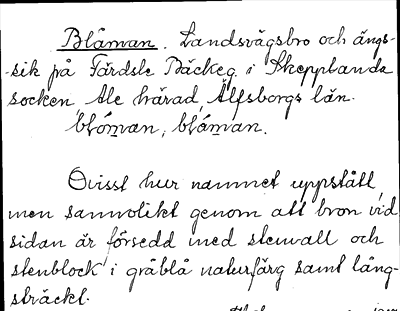 Blåman. Landsvägsbro och ängs-
-sik på Färdsle Bäckeg. i Skepplanda
socken, Ale härad, Älfsborgs län.
blóman, blóman.
Ovisst hur namnet uppstått,
men sannolikt genom att bron vid
sidan är försedd med stenvall och
stenblock i gråblå naturfärg samt lång-
sträckt.